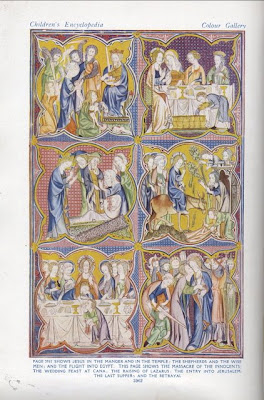 Children's Encyclopedia Colour Gallery
PAGE 741 SHOWS JESUS IN THE MANGER AND IN THE TEMPLE; THE SHEPHERDS AND THE WISE
MEN; AND THE FLIGHT INTO EGYPT. THIS PAGE SHOWS THE MASSACRE OF THE INNOCENTS;
THE WEDDING FEAST AT CANA; THE RAISING OF LAZARUS; THE ENTRY INTO JERUSALEM;
THE LAST SUPPER; AND THE BETRAYAL